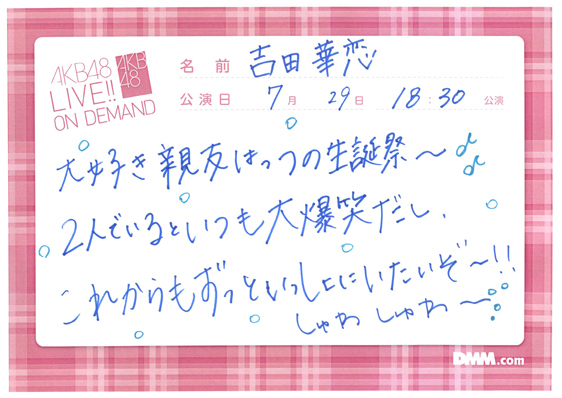 AKB48
LIVE!!
ON DEMAND
AKB
48
名前 吉田華恋
公演日 7月 29日 18:30 公演
大好き親友はっつの生誕祭〜
2人でいるといつも大爆笑だし、
これからもずっといっしょにいたいぞ〜!!
しゅわしゅわ〜
DMM.com